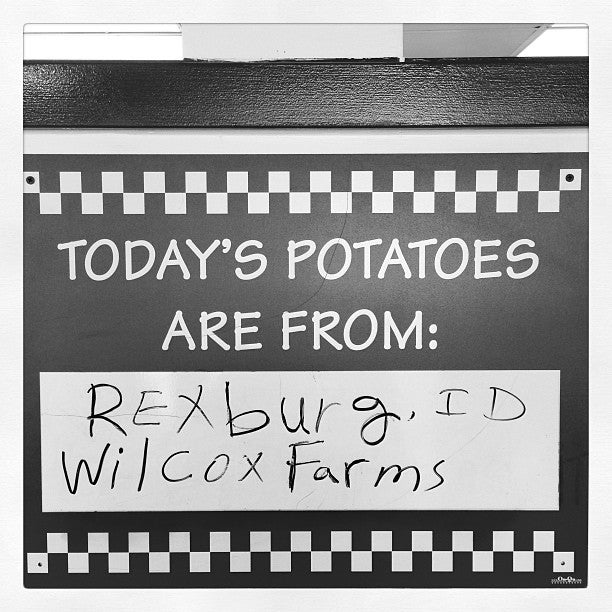 TODAY'S POTATOES
ARE FROM:
REXburg, ID
Wilcox Farms